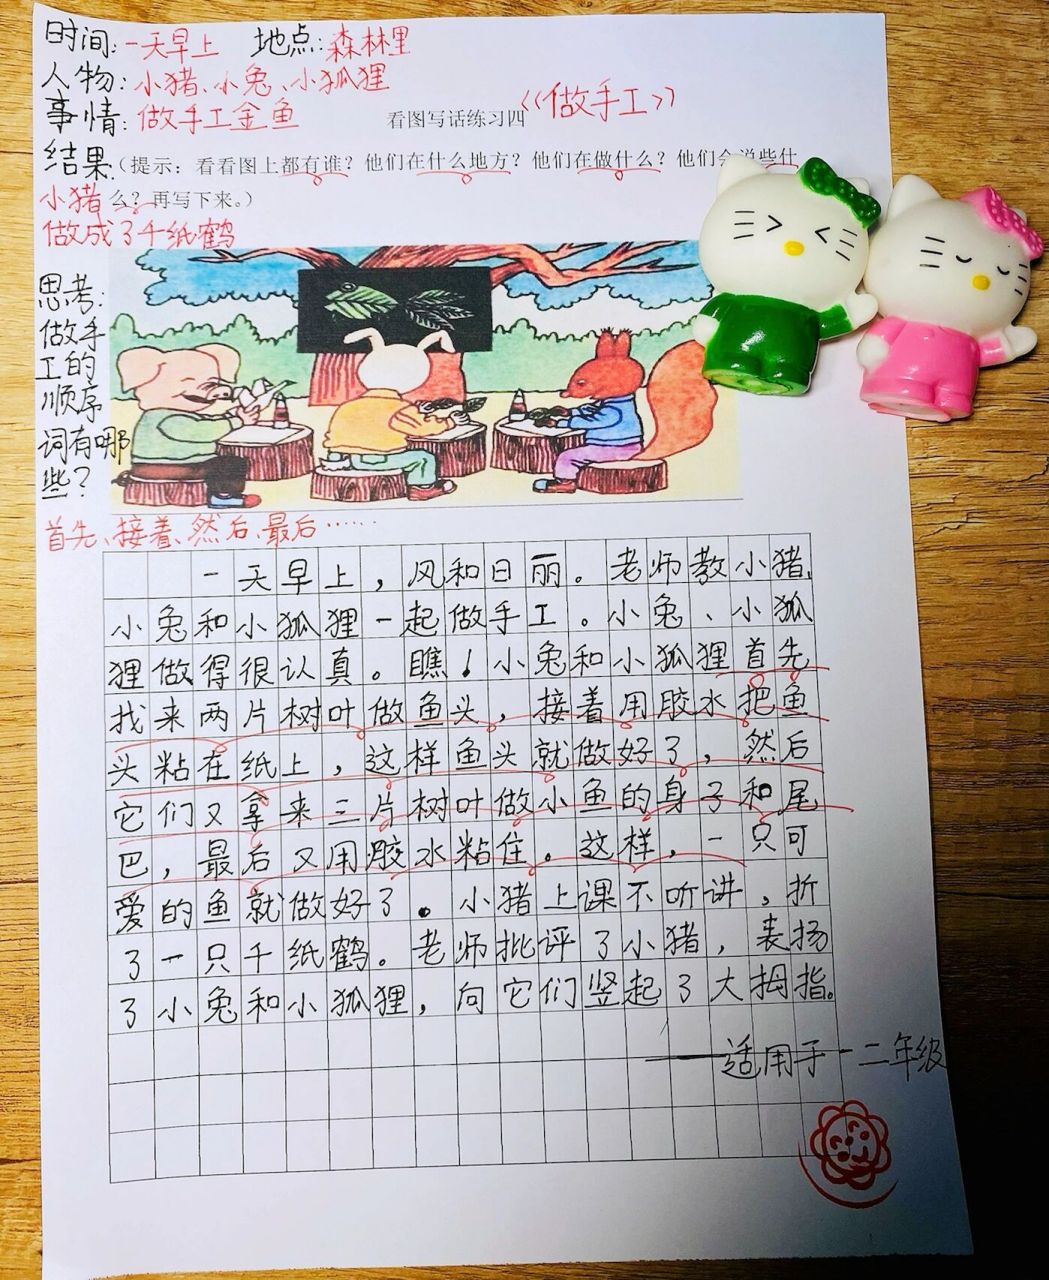 时间：一天早上 地点：森林里
人物：小猪、小兔、小狐狸
事情：做手工金鱼
看图写话练习四
《做手工》
结果（提示：看看图上都有谁？他们在什么地方？他们在做什么？他们会说些什
小猪
么？再写下来。）
做成了千纸鹤
思考：
做手
工的
顺序
词有哪
些？
首先、接着、然后、最后……
一天早上，风和日丽。老师教小猪、
小兔和小狐狸一起做手工。小兔、小狐
狸做得很认真。瞧！小兔和小狐狸首先
找来两片树叶做鱼头，接着用胶水把鱼
头粘在纸上，这样鱼头就做好了，然后
它们又拿来三片树叶做小鱼的身子和尾
巴，最后又用胶水粘住。这样，一只可
爱的鱼就做好了。小猪上课不听讲，折
了一只千纸鹤。老师批评了小猪，表扬
了小兔和小狐狸，向它们竖起了大拇指。
——适用于一二年级